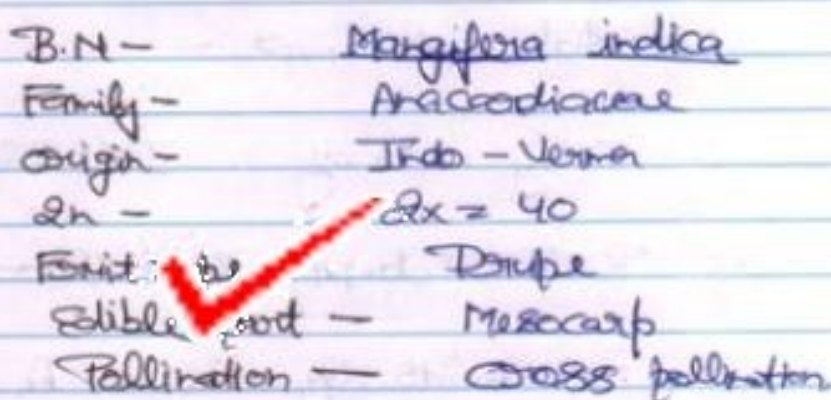 B.N - Mangifera indica
Family - Anacaodiaceae
origin - Indo - Verma
2n - 2x = 40
Fruit Drupe
Edible - Mesocarp
Pollination - cross pollination